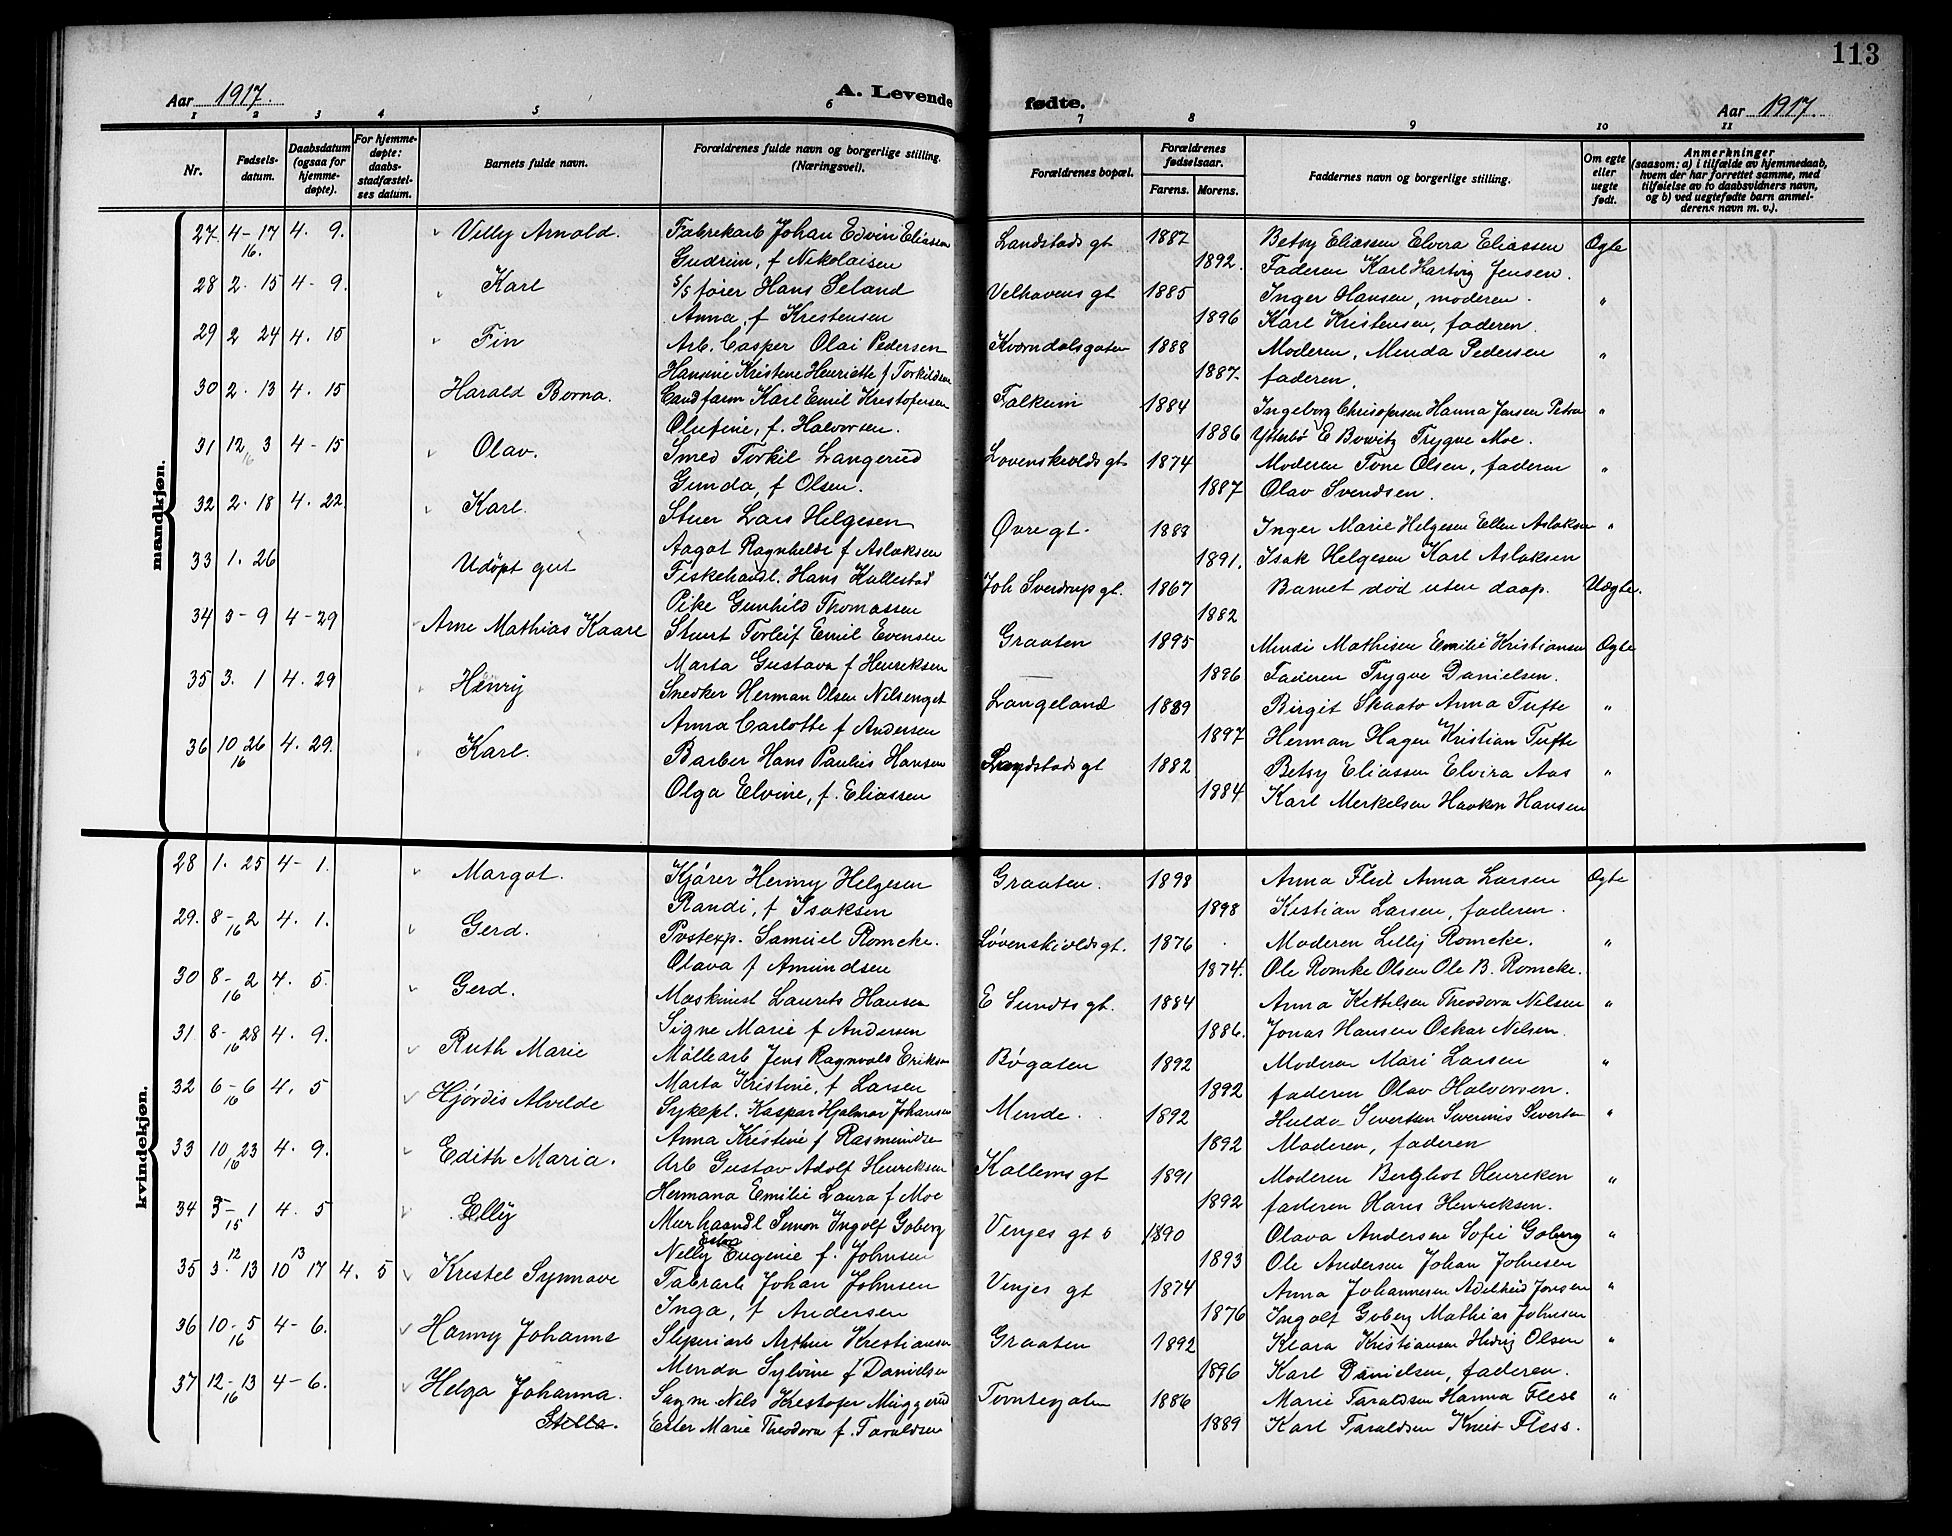 113
Aar 1917. A. Levende fødte. Aar 1917.
1 2 3 4 5 6 7 8 9 10 11
Nr. Fødsels-datum. Daabsdatum (ogsaa for hjemme-døpte). For hjemme-døpte: daabs-stadfæstel-ses datum. Barnets fulde navn. Forældrenes fulde navn og borgerlige stilling. (Næringsvei). Forældrenes bopæl. Forældrenes fødselsaar. Farens. Morens. Faddernes navn og borgerlige stilling. Om egte eller uegte født. Anmerkninger (saasom: a) i tilfælde av hjemmedaab, hvem der har forrettet samme, med tilføielse av to daabsvidners navn, og b) ved uegtefødte barn anmel-derens navn m. v.).
mandkjøn.
27 4-17 16. 4. 9. Villy Arnold. Fabrekarb Johan Edvin Eliassen Landstads gt 1887 Betsy Eliassen Elvira Eliassen Ægte
Gudrun, f Nikolaisen 1892. Faderen Karl Hartvig Jensen.
28 2. 15 4-9. Karl S/S fører Hans Seland Velhavens gt 1885 Inger Hansen, moderen. "
Anna, f Kristensen 1896 Karl Kristensen, faderen.
29 2 24 4. 15 Fin Arb. Casper Olai Pedersen Kværndalsgaten 1888 Moderen, Menda Pedersen "
Hansine Kristine Henriette f Torkildsen 1887. faderen.
30 2. 13 4. 15 Harald Borna. Cand farm Karl Emil Kristofersen Falkum 1884 Ingeborg Chrisopersen Hanna Jensen Petra "
Olufine, f. Halvorsen. 1886 Ytterbø E Bowitz Trygve Moe.
31 12 3 16 4-15 Olav. Smed Torkil Langerud Lovenskiolds gt 1874 Moderen Tone Olsen, faderen "
Gunda, f Olsen. 1887 Olav Svendsen.
32 2. 18 4. 22 Karl. Stuer Lars Helgesen Øvre gt. 1888 Inger Marie Helgesen Ellen Aslaksen "
Aagot Ragnhilde f Aslaksen 1891. Isak Helgesen Karl Aslaksen
33 1. 26 Udøpt gut Fiskehandl. Hans Kallestad Joh Sverdrups gt. 1867 Barnet død uten daap. Uægte.
Pike Gunhild Thomassen 1882
34 3-9 4-29 Arne Mathias Kaare Stuert Torleif Emil Evensen Graaten 1895 Mindi Mathisen Emilie Kristiansen Ægte
Marta Gustava f Henriksen 1896 Faderen Trygve Danielsen.
35 3. 1 4. 29 Henry Snedker Herman Olsen Nilsenget Langeland 1889 Birgit Skaato Anna Tufte "
Anna Carlotte f Andersen 1897 Herman Hagen Kristian Tufte
36 10 26 16 4. 29. Karl. Barber Hans Paulus Hansen Landstads gt 1882 Betsy Eliassen Elvira Aas "
Olga Elvine, f. Eliassen 1884 Karl Merkelsen Haakon Hansen
kvindekjøn.
28 1. 25 4-1. Margot. Kjører Henny Helgesen Graaten. 1898 Anna Flid Anna Larsen Ægte
Randi, f Isaksen 1898 Kristian Larsen, faderen.
29. 8-2 16 4. 1. Gerd. Postexp. Samuel Romcke. Løvenskiolds gt. 1876 Moderen Lilly Romcke. "
Olava f Amundsen 1874. Ole Romke Olsen Ole B. Romcke.
30 8-2 16 4. 5. Gerd. Maskinist Laurits Hansen E Sundts gt. 1884 Anna Kittilsen Theodora Nilsen "
Signe Marie f Andersen 1886. Jonas Hansen Oskar Nilsen.
31 8-28 16 4. 9. Ruth Marie Møllearb Jens Ragnvald Eriksen Bøgaten 1892 Moderen Mari Larsen "
Marta Kristine, f Larsen 1892 faderen Olav Halvorsen.
32 6-6 16 4. 5 Hjørdis Alvilde Sykepl. Kaspar Hjalmar Johansen Mende. 1892 Hulda Sivertsen Severinis Siverts "
Anna Kristine f Rasmundse 1892 Moderen, faderen
33 10 23 16 4. 9. Edith Maria. Arb Gustav Adolf Henriksen Kallems gt 1891 Moderen Bergliot Henriksen "
Hermana Emilie Laura f Moe 1892 faderen Hans Henriksen.
34 3-1 15 4. 5 Elly Murhaandl Simon Ingolf Goberg Vinjes gt 6 1890 Olava Andersen Sofie Goberg "
Nelly Ester Eugenie f. Johnsen 1893 Ole Andersen Johan Johnsen
35 3. 13 12 10 17 13 4. 5 Kristel Synnøve Fabrarb Johan Johnsen Vinjes gt 1874 Anna Johannesen Adelheid Jensen "
Inga, f Andersen 1876 Ingolf Goberg Mathias Johnsen
36 10-5 16 4-6. Hanny Johanne Sliperiarb Arthur Kristiansen Graaten 1892 Klara Kristiansen Hedvig Olsen "
Menda Sylvine f Danielsen 1896 Karl Danielsen, faderen.
37 12-13 16 4-6. Helga Johanna. Sagm Nils Kristofer Muggerud Tomtegaten 1886 Marie Taraldsen Hanna Fless "
Stella. Ester Marie Theodora f. Taraldsen 1889 Karl Taraldsen Knut Fless.